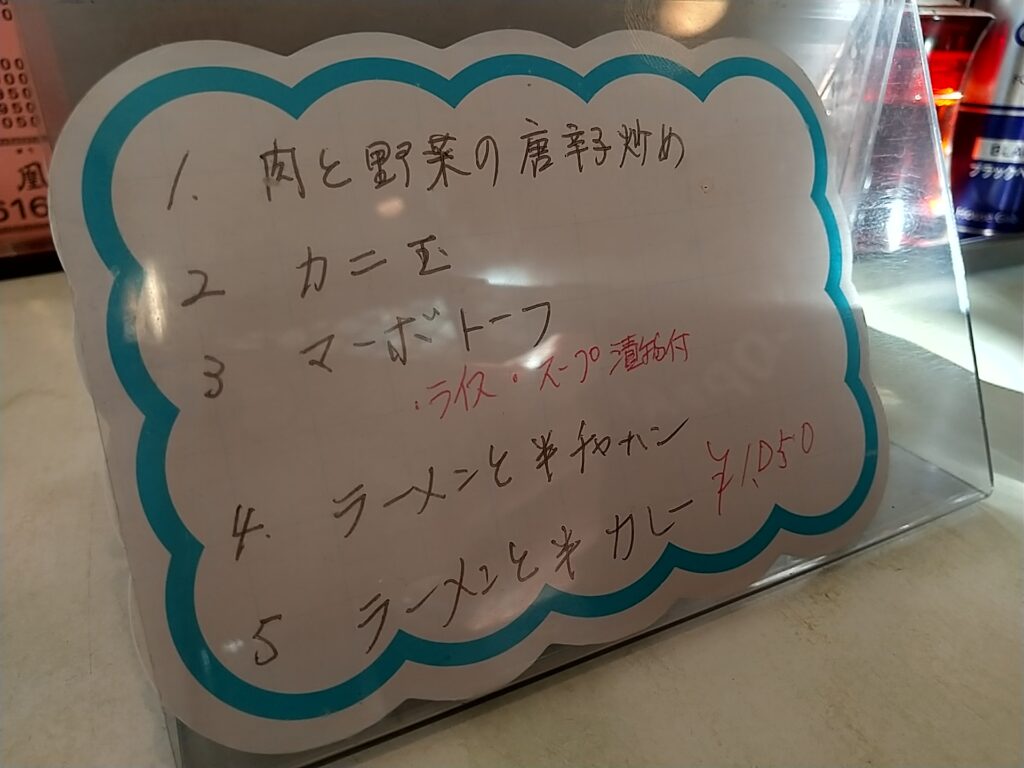 1. 肉と野菜の唐辛子炒め
2 カニ玉
3 マーボトーフ
・ライス・スープ漬物付
4. ラーメンと半チャーハン
5 ラーメンと半カレー
¥1,050
00
00
950
950
050
凰
616
BLA
ブラックペ